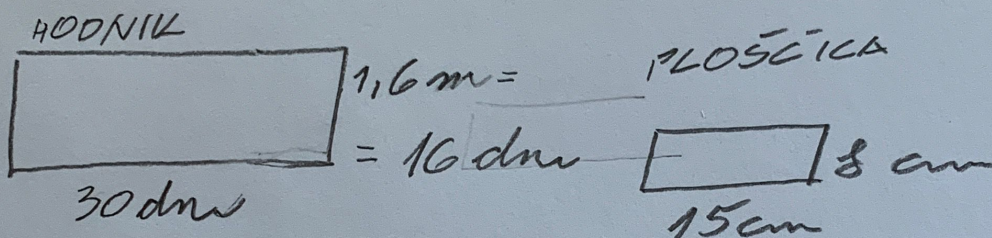 HODNIK
1,6 m =
= 16 dm
30 dm
PLOŠČICA
8 cm
15 cm